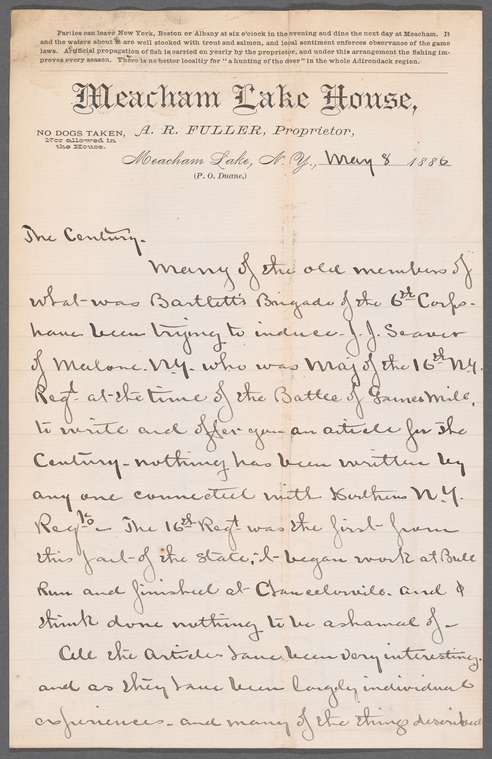 Parties can leave New York, Boston or Albany at six o'clock in the evening and dine the next day at Meacham. It
and the waters about it are well stocked with trout and salmon, and local sentiment enforces observance of the game
laws. Artificial propagation of fish is carried on yearly by the proprietor, and under this arrangement the fishing im-
proves every season. There is no better locality for "a hunting of the deer" in the whole Adirondack region.
Meacham Lake House,
NO DOGS TAKEN,
Nor allowed in
the House.
A. R. FULLER, Proprietor,
Meacham Lake, N. Y., May 8 1886
(P. O. Duane.)
The Century.
Many of the old members of
what was Bartlett's Brigade of the 6th Corps-
have been trying to induce J. J. Seaver
of Malone. N.Y. who was Maj of the 16th N.Y.
Regt at the time of the Battle of Gaines Mill,
to write and offer you an article for The
Century - nothing has been written by
any one connected with Northern N.Y.
Regts- The 16th Regt was the first from
this part of the State, It began work at Bull
Run and finished at Chancelorvile. and I
think done nothing to be ashamed of -
All the articles have been very interesting.
and as they have been largely individual
experiences - and many of the things described